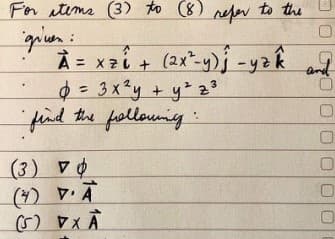 For items (3) to (8) refer to the
given:
A⃗ = xzî + (2x²-y)ĵ - yzk̂ and
ϕ = 3x²y + y²z³
find the following:
(3) ∇ϕ
(4) ∇·A⃗
(5) ∇×A⃗